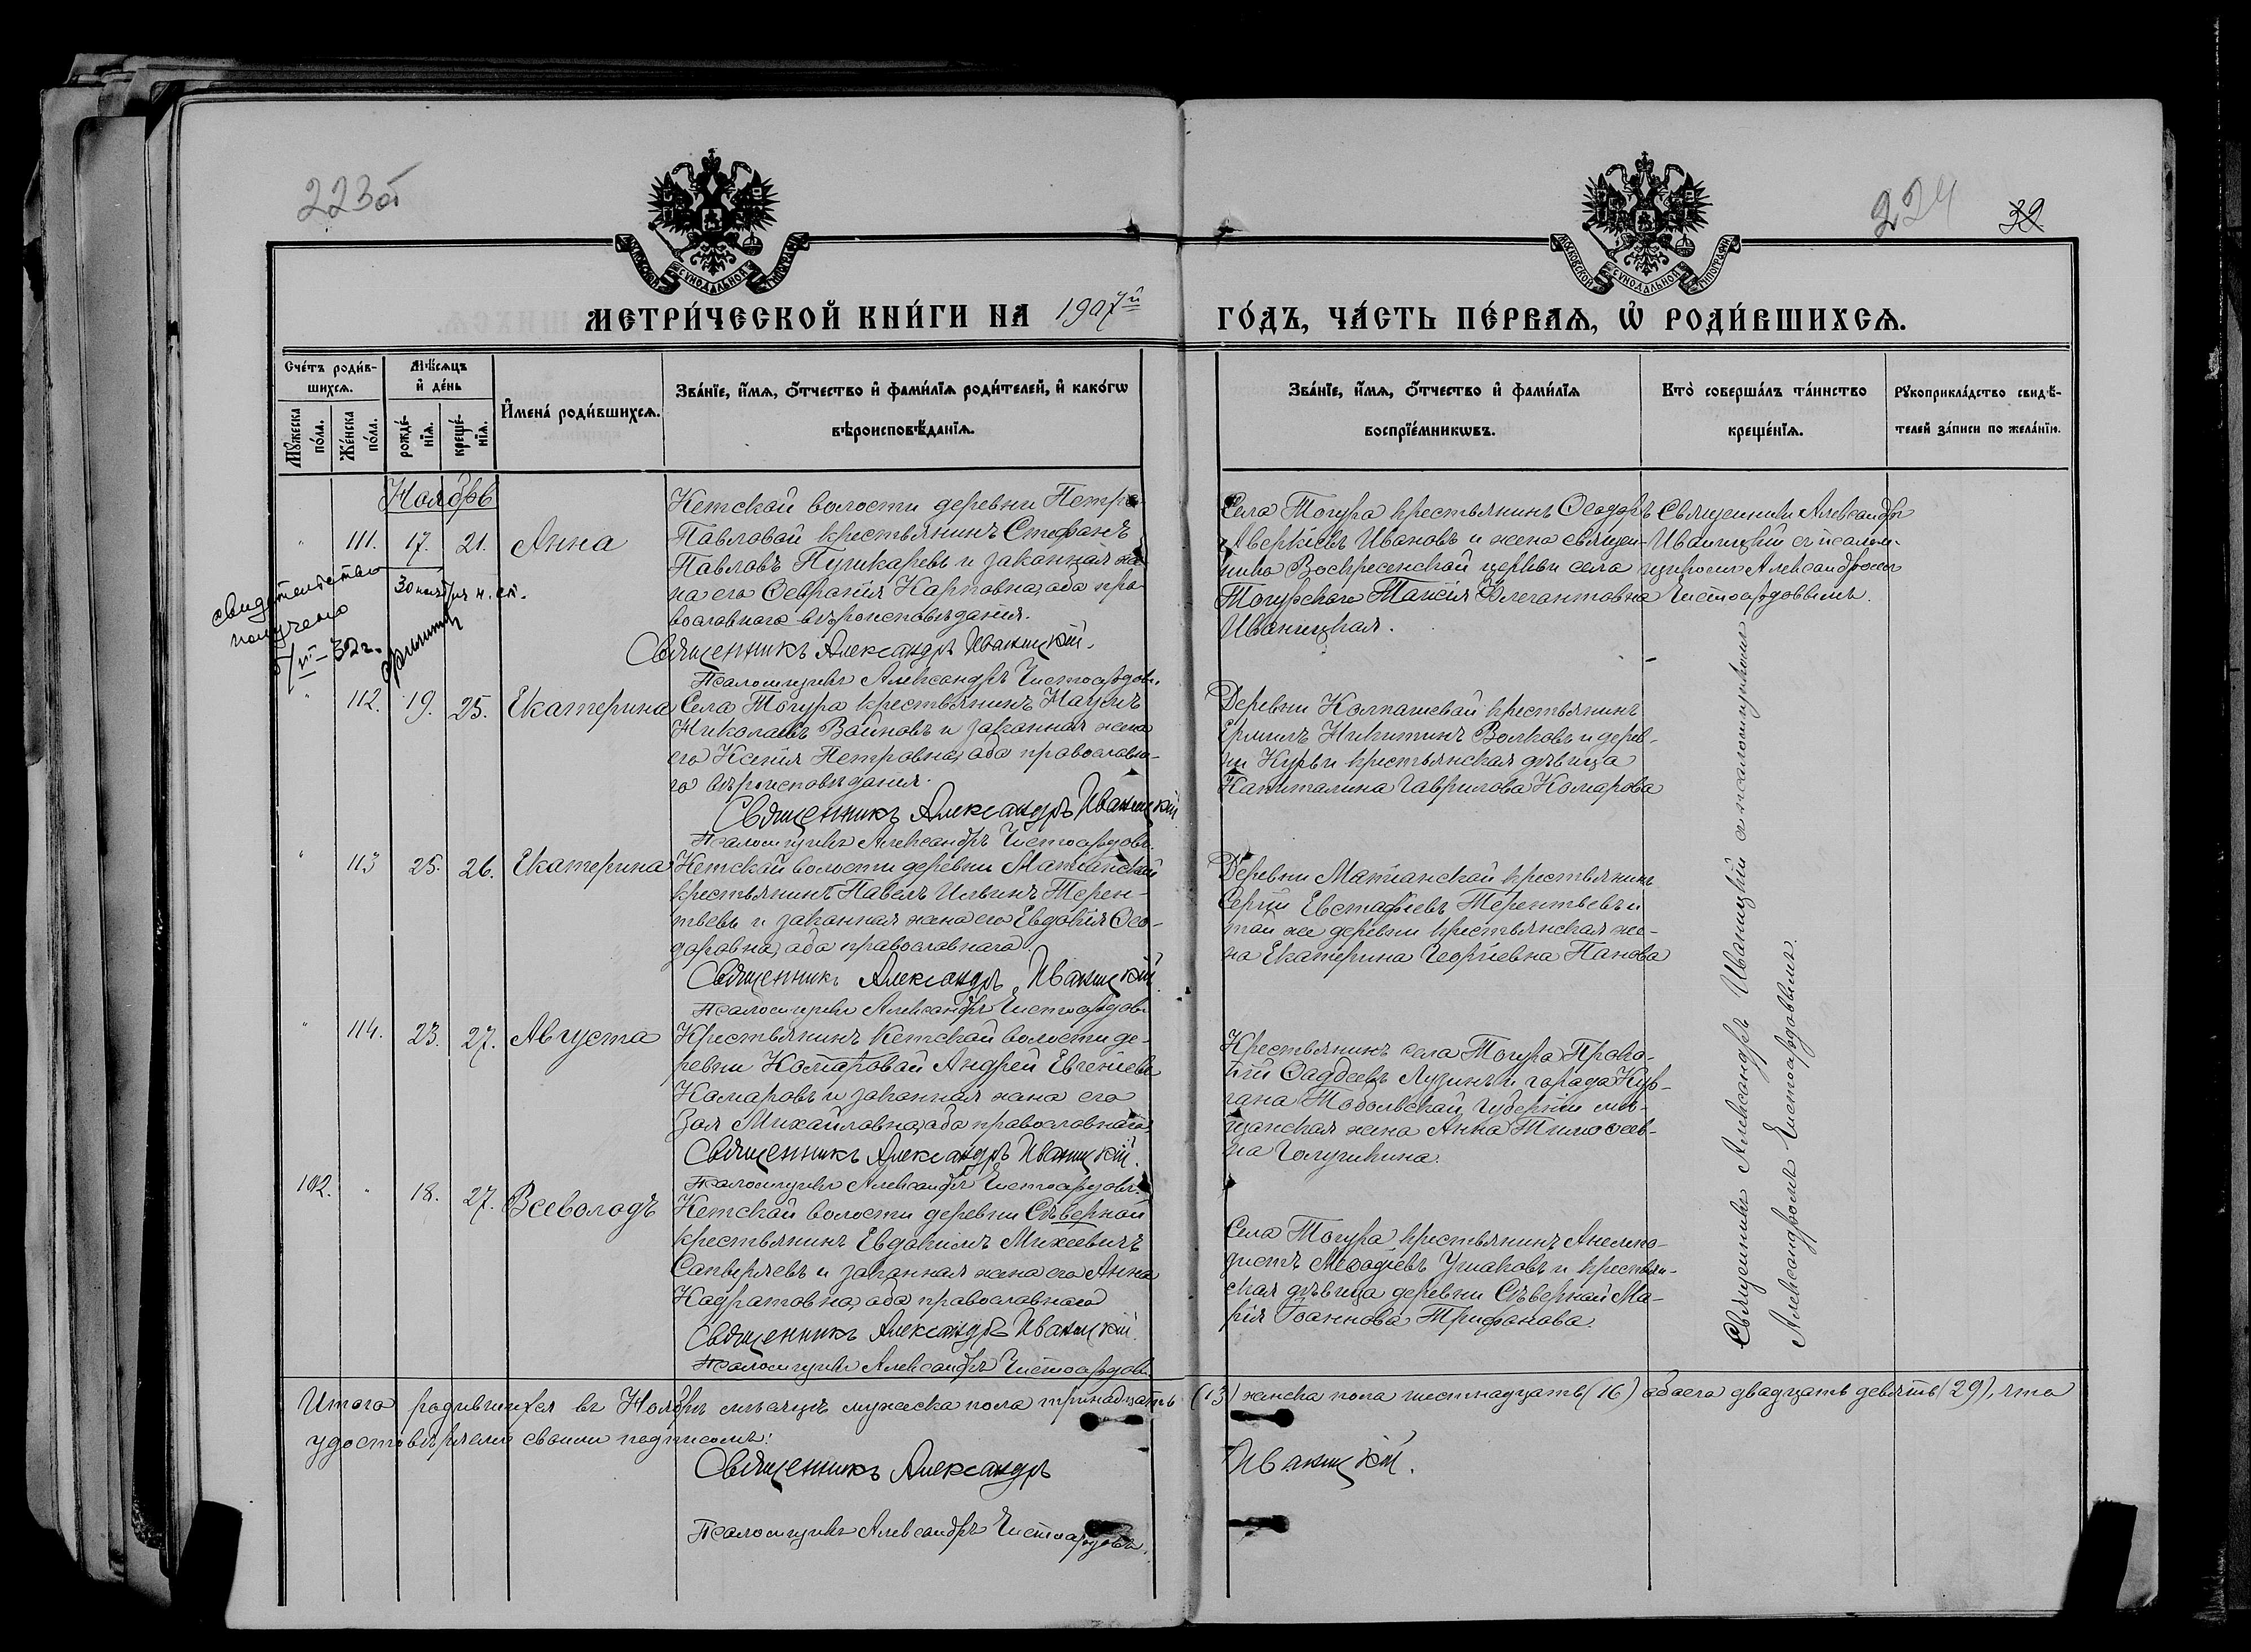 223об
224
32
МОСКОВСКОЙ СѴНОДАЛЬНОЙ ТИПОГРАФІИ
МОСКОВСКОЙ СѴНОДАЛЬНОЙ ТИПОГРАФІИ
МЕТРИ́ЧЕСКОЙ КНИ́ГИ НА 1907й ГО́ДЪ, ЧА́СТЬ ПЕ́РВАЯ, Ѡ РОДИ́ВШИХСЯ.
Сче́тъ роди́вшихся.
Мѹжеска по́ла.
Же́нска по́ла.
Мѣ́сяцъ и де́нь
рожде́нїя.
креще́нїя.
Имена́ роди́вшихся.
Зва́нїе, и́мя, ѻ́тчество и фами́лїя роди́телей, и како́гѡ
вѣроисповѣ́данїя.
Зва́нїе, и́мя, ѻ́тчество и фами́лїя
воспрїе́мникѡвъ.
Кто̀ соверша́лъ та́инство
креще́нїя.
Рѹкоприкла́дство свидѣ́-
телей за́писи по жела́нїю.
Ноябрь
111. 17. 21. Анна
30 ноября н. ст.
свидетельство
получено
5/VII-32г.
Кетской волости деревни Петро-
Павловой крестьянинъ Стефанъ
Павловъ Пушкаревъ и законная же-
на его Февронія Карповна, оба пра-
вославнаго вѣроисповѣданія.
Священникъ Александръ Иваницкій.
Псаломщикъ Александръ Чистосердовъ.
Села Тогура крестьянинъ Ѳеодоръ
Аверкіевъ Ивановъ и жена священ-
ника Воскресенской церкви села
Тогурскаго Таисія Флегантовна
Иваницкая.
Священникъ Александръ
Иваницкій съ псалом-
щикомъ Александромъ
Чистосердовымъ.
112. 19. 25. Екатерина
Села Тогура крестьянинъ Наумъ
Николаевъ Войновъ и законная жена
его Ксенія Петровна, оба православна-
го вѣроисповѣданія.
Священникъ Александръ Иваницкій
Псаломщикъ Александръ Чистосердовъ.
Деревни Колпашевой крестьянинъ
Ермилъ Никитинъ Волковъ и дерев-
ни Курьи крестьянская дѣвица
Капиталина Гаврилова Комарова
113 25. 26. Екатерина
Кетской волости деревни Матіанской
крестьянинъ Павелъ Ильинъ Терен-
тьевъ и законная жена его Евдокія Ѳео-
доровна, оба православнаго.
Священникъ Александръ Иваницкій.
Псаломщикъ Александръ Чистосердовъ
Деревни Матіанской крестьянинъ
Сергій Евстафіевъ Терентьевъ и
той же деревни крестьянская же-
на Екатерина Георгіевна Панова
114. 23. 27. Августа
Крестьянинъ Кетской волости де-
ревни Комаровой Андрей Евгеніевъ
Комаровъ и законная жена его
Зоя Михайловна, оба православнаго
Священникъ Александръ Иваницкій.
Псаломщикъ Александръ Чистосердовъ.
Крестьянинъ села Тогура Проко-
пій Ѳаддеевъ Лузинъ и города Кур-
гана Тобольской губерніи мѣ-
щанская жена Анна Тимоѳеев-
на Голушкина.
102. 18. 27. Всеволодъ
Кетской волости деревни Сѣверной
крестьянинъ Евдокимъ Михеевичъ
и законная жена его Анна
Кодратовна, оба православнаго
Священникъ Александръ Иваницкій.
Псаломщикъ Александръ Чистосердовъ
Села Тогура крестьянинъ Анемпо-
дистъ Меѳодіевъ Ушаковъ и крестьян-
ская дѣвица деревни Сѣверной Ма-
рія Іоаннова Трифонова.
Священникъ Александръ Иваницкій съ псаломщикомъ
Александромъ Чистосердовымъ.
Итого родившихся въ Ноябрѣ мѣсяцѣ мужеска пола тринадцать (13) женска пола шестнадцать (16) обоего двадцать девять (29), что
удостовѣряемъ своимъ подписомъ:
Священникъ Александръ Иваницкій.
Псаломщикъ Александръ Чистосердовъ.